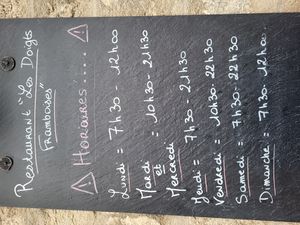 Restaurant "Les Doigts
Framboises"
⚠ Horaires.... ⚠
Lundi = 7h30 - 12h00
Mardi
et = 10h30 - 21h30
Mercredi
Jeudi = 7h30 - 21h30
Vendredi = 10h30 - 22h30
Samedi = 7h30 - 22h30
Dimanche = 7h30 - 12h00